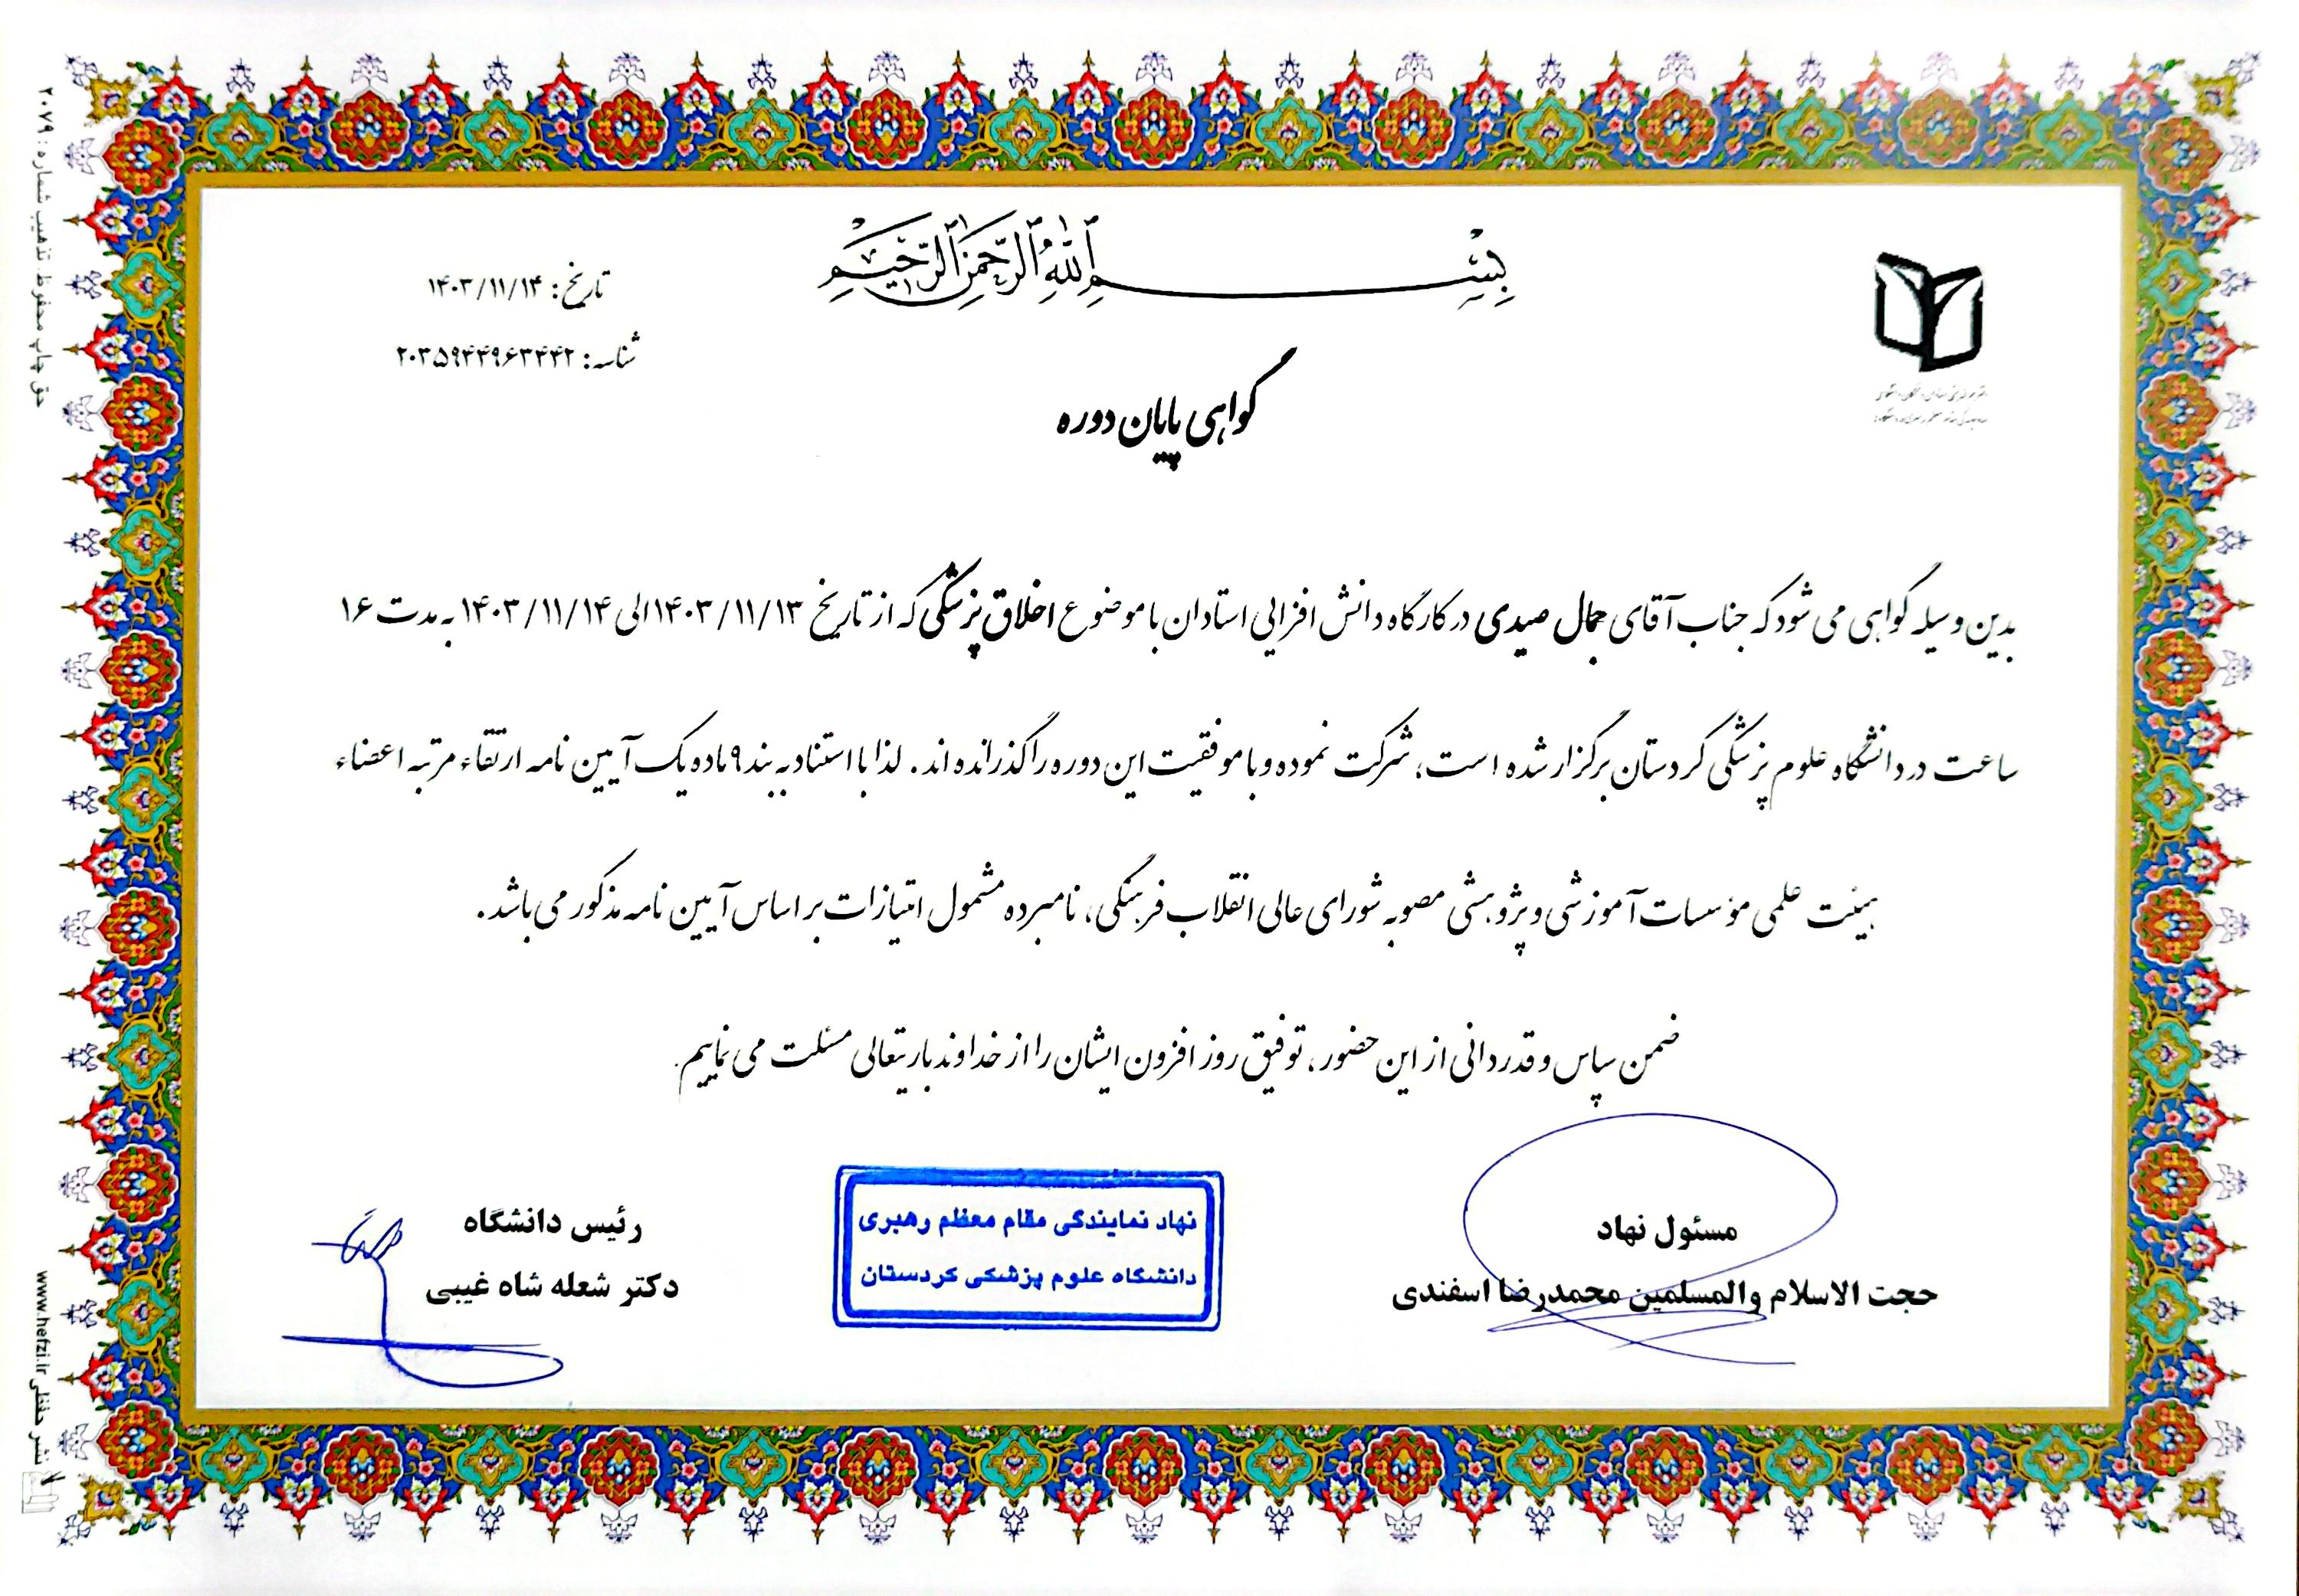 بِسْمِ ٱللَّهِ ٱلرَّحْمَٰنِ ٱلرَّحِيمِ
تاریخ: ۱۴۰۳/۱۱/۱۴
شناسه: ۲۰۳۵۹۴۴۹۶۳۴۴۲
گواهی پایان دوره
بدین وسیله گواهی می شود که جناب آقای جمال صیدی در کارگاه دانش افزایی استادان با موضوع اخلاق پزشکی که از تاریخ ۱۴۰۳/۱۱/۱۳ الی ۱۴۰۳/۱۱/۱۴ به مدت ۱۶
ساعت در دانشگاه علوم پزشکی کردستان برگزار شده است، شرکت نموده و با موفقیت این دوره را گذرانده اند. لذا با استناد به بند ۹ ماده یک آیین نامه ارتقاء مرتبه اعضاء
هیئت علمی مؤسسات آموزشی و پژوهشی مصوبه شورای عالی انقلاب فرهنگی، نامبرده مشمول امتیازات بر اساس آیین نامه مذکور می باشد.
ضمن سپاس و قدردانی از این حضور، توفیق روز افزون ایشان را از خداوند باریتعالی مسئلت می نماییم.
مسئول نهاد
حجت الاسلام والمسلمین محمدرضا اسفندی
نهاد نمایندگی مقام معظم رهبری
دانشگاه علوم پزشکی کردستان
رئیس دانشگاه
دکتر شعله شاه غیبی
حق چاپ محفوظ. تذهیب شماره: ۲۰۷۹
نشر حفظی www.hefzi.ir